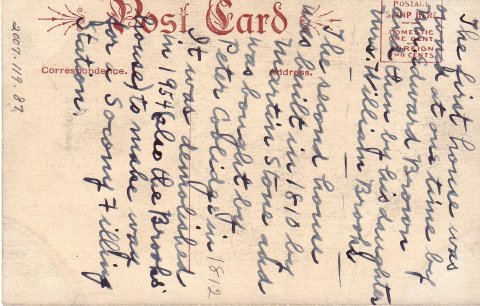 Post Card
Correspondence.
Address.
POSTAGE
STAMP HERE
DOMESTIC
ONE CENT
FOREIGN
TWO CENTS
The first house was
owned at one time by
Edward Brown
and then by his daughter
Mrs. William Brooks
The second house
was built in 1810 by
Martin Stone and
was bought by
Peter Coolidge in 1812
It was demolished
in 1954 (also the Brooks'
house) to make way
for Socony Filling
Station.